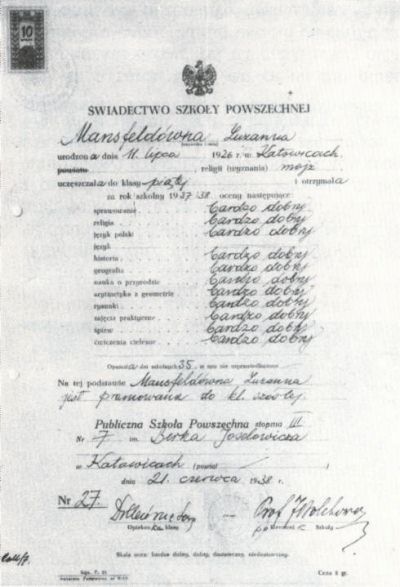 10
ŚWIADECTWO SZKOŁY POWSZECHNEJ
Mansfeldówna Zuzanna
urodzona dnia 11. lipca 1926 r. w Katowicach
powiatu , religii (wyznania) mojż
uczęszczała do klasy piątej i otrzymała
za rok szkolny 1937/38. oceny następujące
sprawowanie bardzo dobry
religia bardzo dobry
język polski bardzo dobry
język
historia bardzo dobry
geografia bardzo dobry
nauka o przyrodzie bardzo dobry
arytmetyka z geometrią bardzo dobry
rysunki bardzo dobry
zajęcia praktyczne bardzo dobry
śpiew bardzo dobry
ćwiczenia cielesne bardzo dobry
Opuściła dni szkolnych 35, w tem nie usprawiedliwiono
Na tej podstawie Mansfeldówna Zuzanna
jest promowana do kl. szóstej
Publiczna Szkoła Powszechna stopnia III
Nr 7 im. Berka Joselowicza
w Katowicach (powiat )
dnia 21. czerwca 1938 r.
Nr 27.
Prof
Opiekunka klasy Kierownik Szkoły
Skala ocen: bardzo dobry, dobry, dostateczny, niedostateczny.
Cena 8 gr.